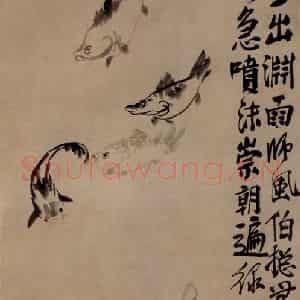 出淵雨師風伯
急噴沫崇朝遍
Shufawang.CN